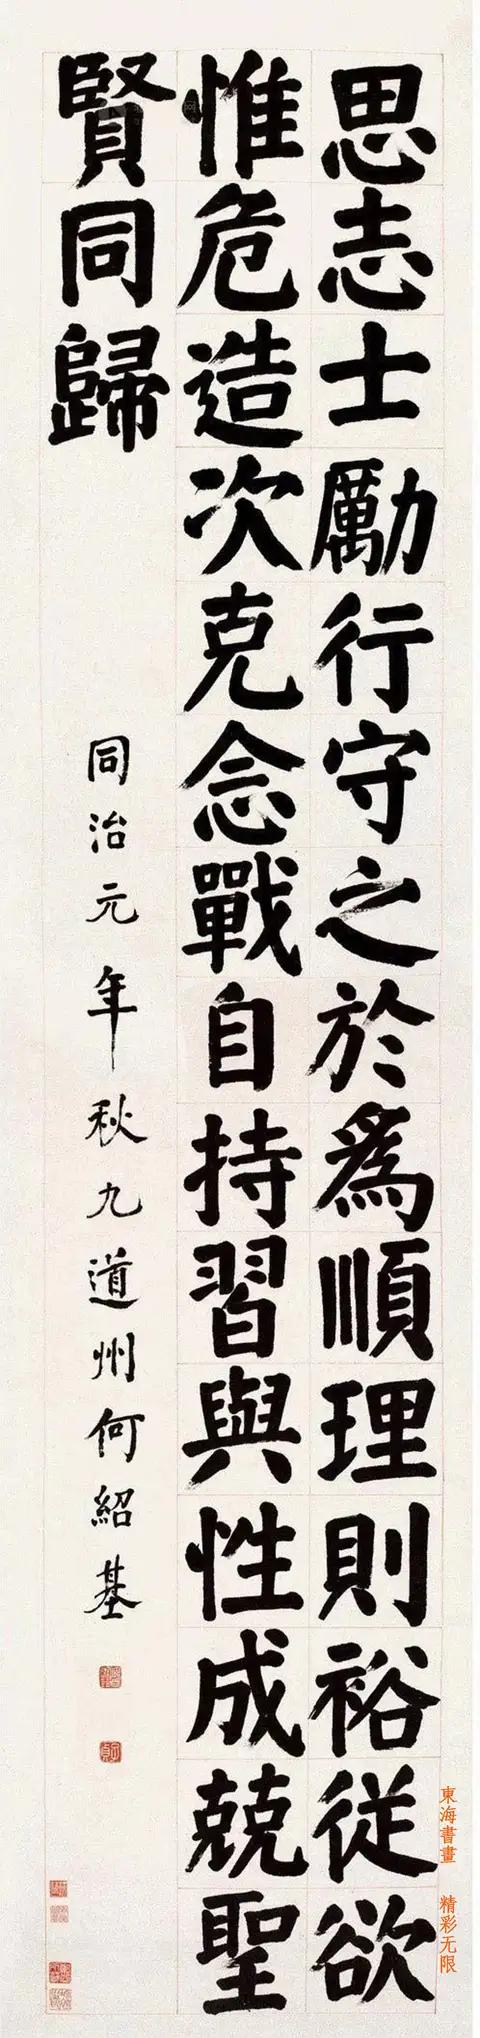 思志士勵行守之於爲順理則裕從欲
惟危造次克念戰自持習與性成兢聖
賢同歸
同治元年秋九道州何紹基
東海書畫 精彩无限